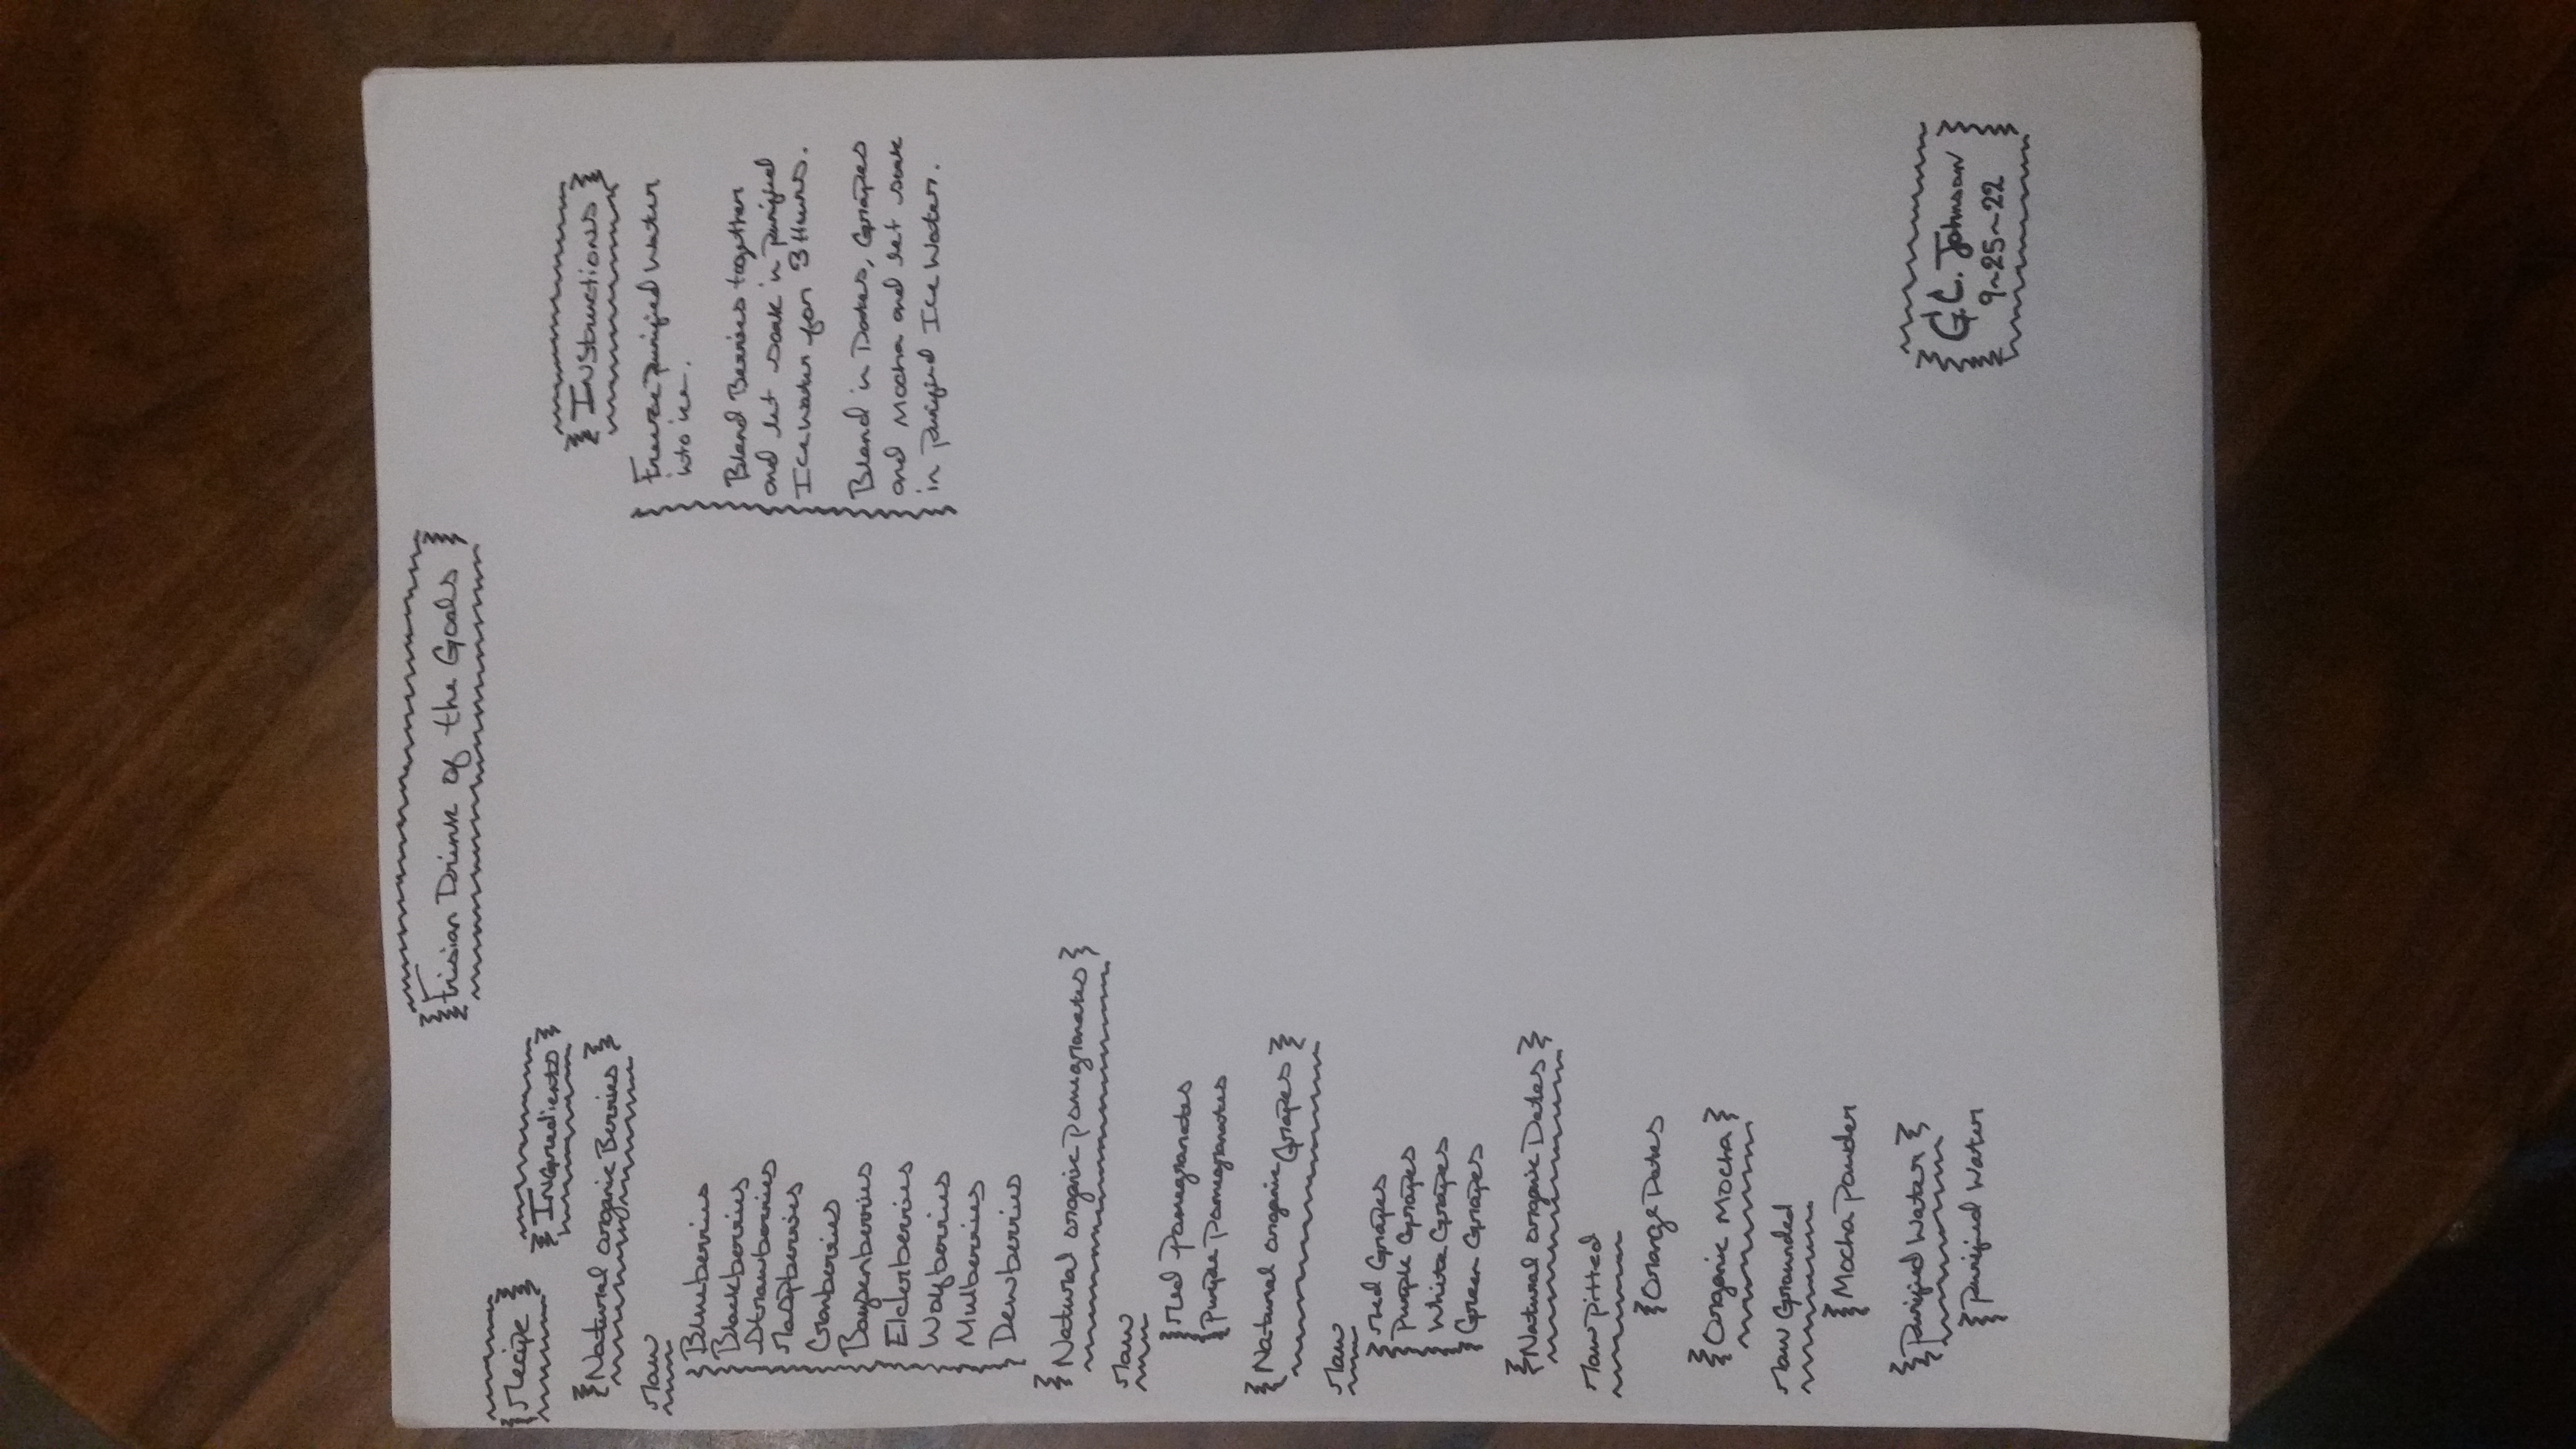 Frisian Drink of the Goals
Recipe
INGredients
Natural organic Berries
Raw
Blueberries
Blackberries
Strawberries
Raspberries
Cranberries
Boysenberries
Elderberries
Wolfberries
Mulberries
Dewberries
Natural organic Pomegranates
Raw
Red Pomegranates
Purple Pomegranates
Natural organic Grapes
Raw
Red Grapes
Purple Grapes
White Grapes
Green Grapes
Natural organic Dates
Raw Pitted
Orange Dates
Organic Mocha
Raw Grounded
Mocha Powder
Purified Water
Purified Water
INstructions
Freeze purified Water
into ice.
Blend Berries together
and let soak in Purified
Ice Water for 3 Hours.
Blend in Dates, Grapes
and Mocha and let soak
in Purified Ice Water.
G.C. Johnson
9~25~22